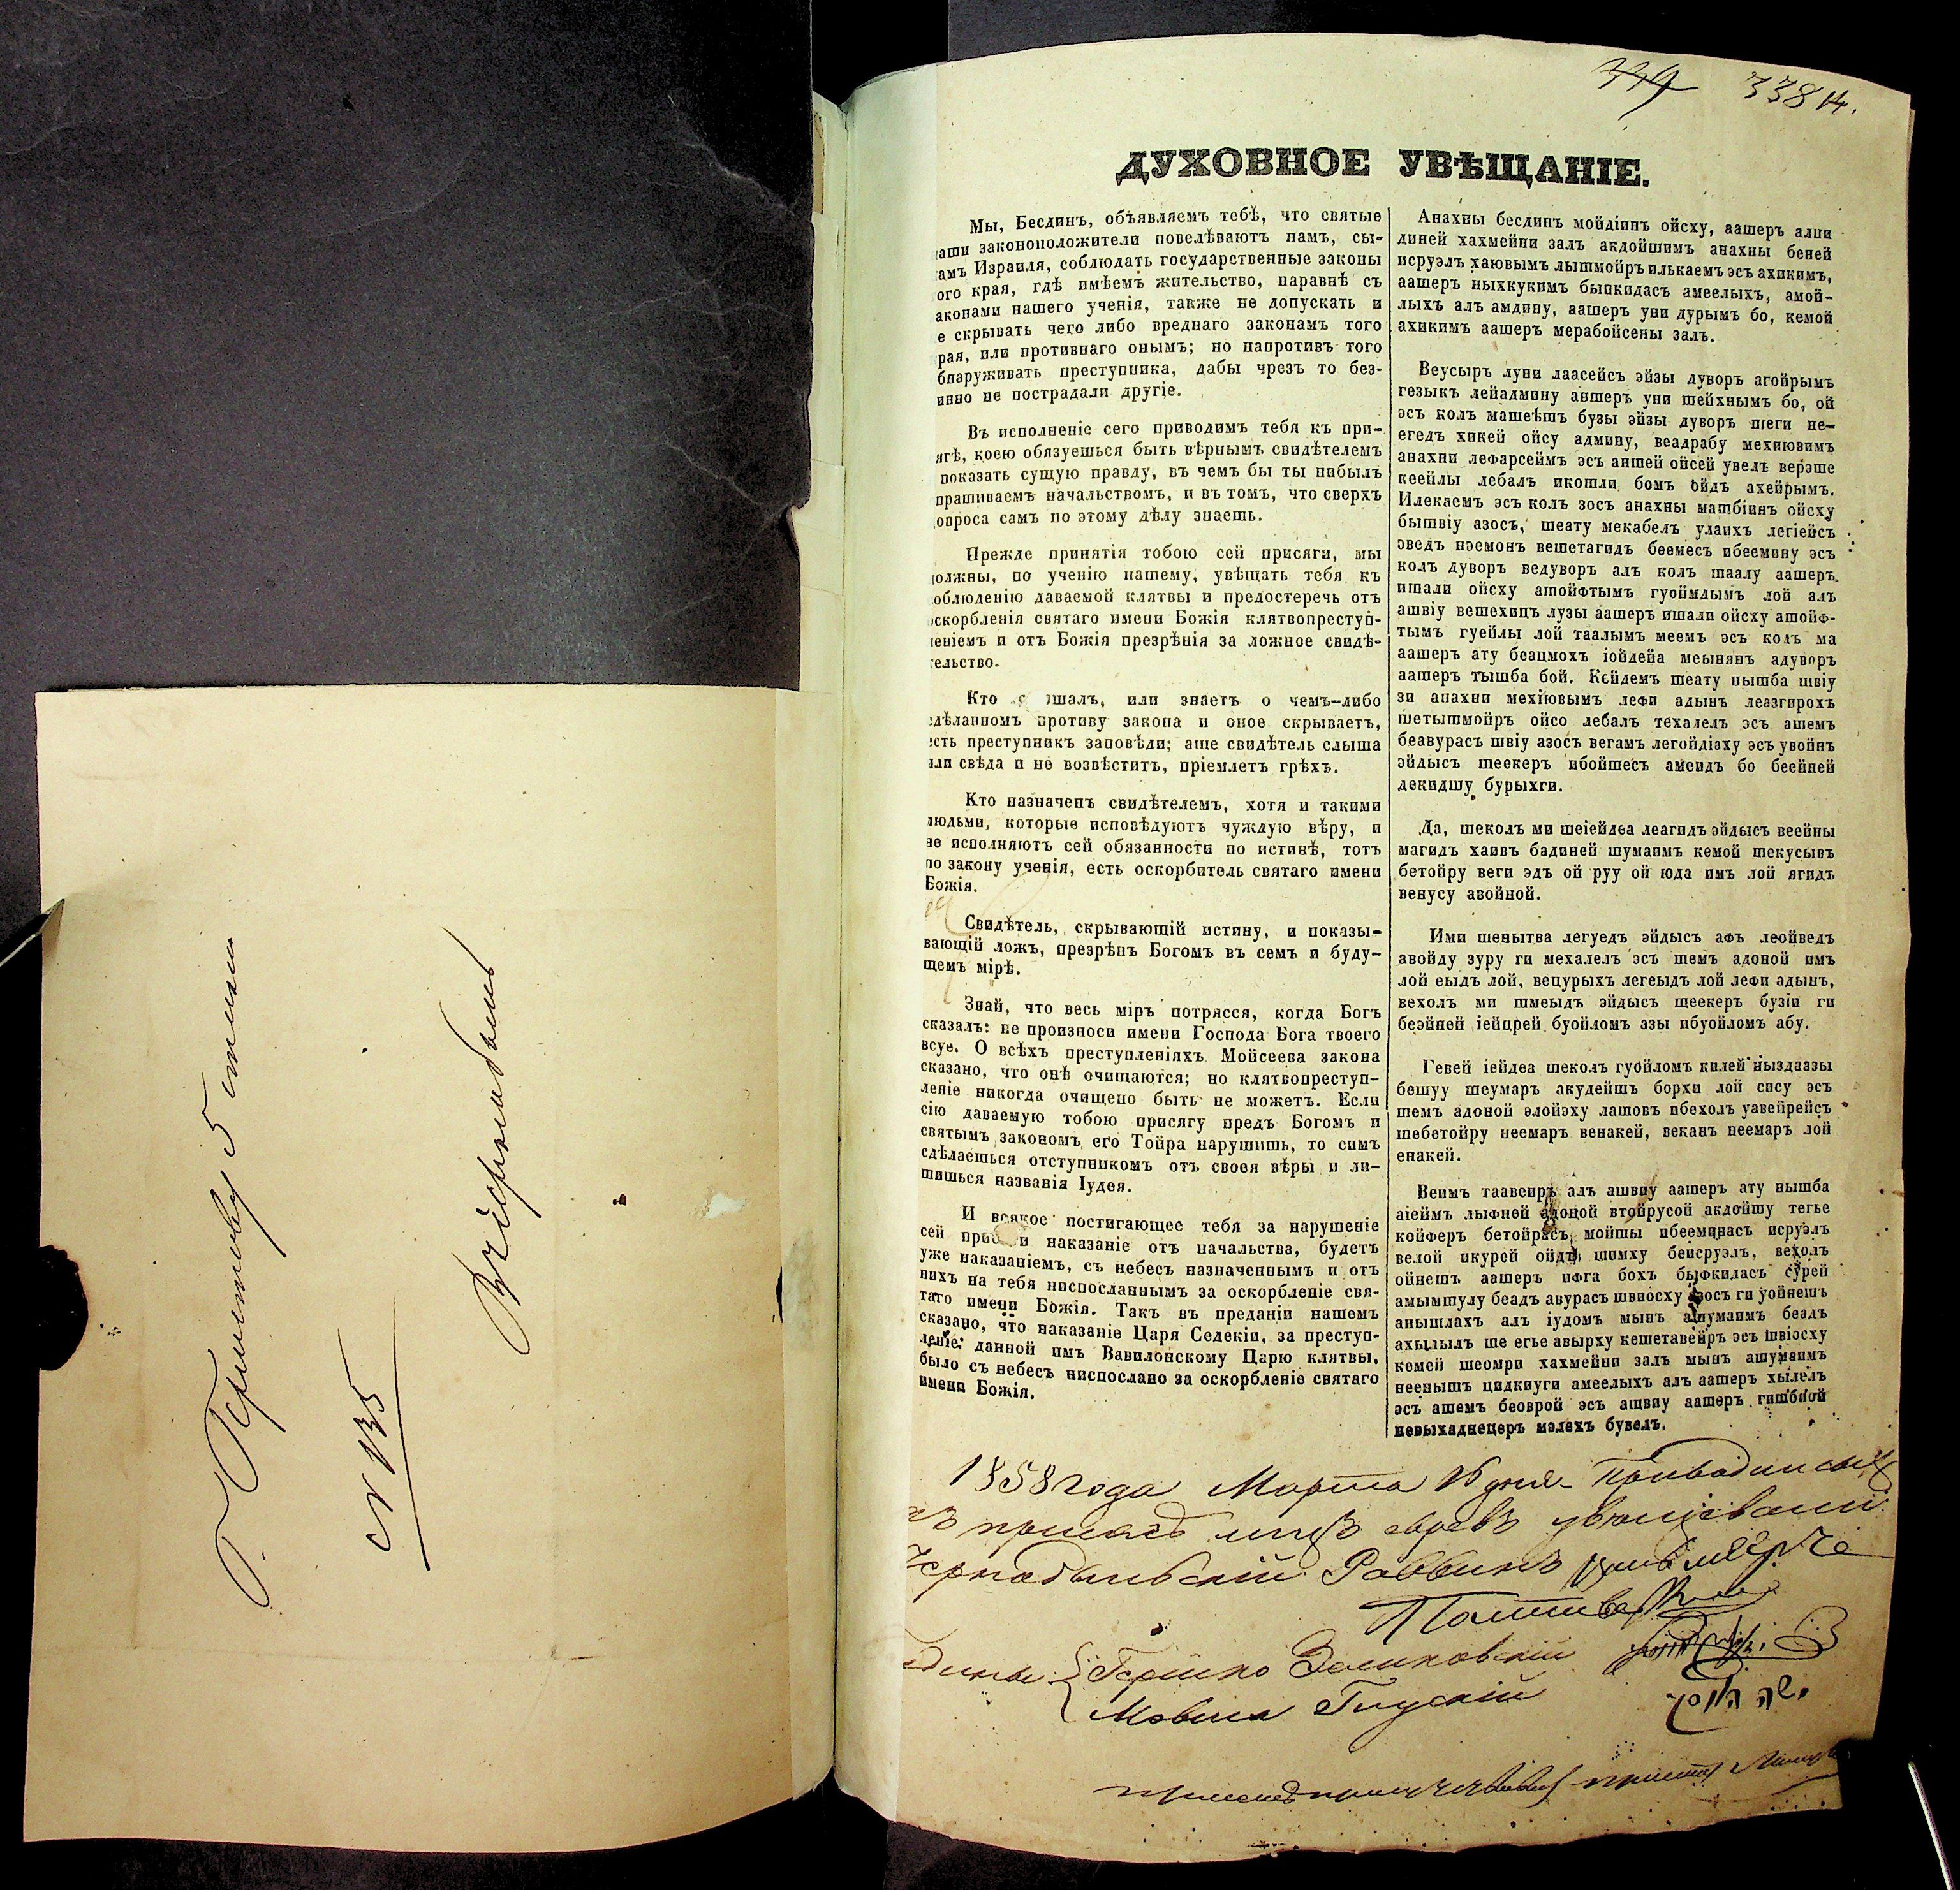 Г. Приставу 5 стана
№ 135
Въ Чернобыль
319 338
ДУХОВНОЕ УВѢЩАНІЕ.
Мы, Бесдинъ, объявляемъ тебѣ, что святые
аши законоположители повелѣваютъ намъ, сы-
амъ Израиля, соблюдать государственные законы
ого края, гдѣ имѣемъ жительство, наравнѣ съ
аконами нашего ученія, также не допускать и
е скрывать чего либо вреднаго законамъ того
рая, или противнаго онымъ; но напротивъ того
бнаруживать преступника, дабы чрезъ то без-
инно не пострадали другіе.
Въ исполненіе сего приводимъ тебя къ при-
ягѣ, коею обязуешься быть вѣрнымъ свидѣтелемъ
показать сущую правду, въ чемъ бы ты нибылъ
прашиваемъ начальствомъ, и въ томъ, что сверхъ
опроса самъ по этому дѣлу знаешь.
Прежде принятія тобою сей присяги, мы
олжны, по ученію нашему, увѣщать тебя къ
облюденію даваемой клятвы и предостеречь отъ
оскорбленія святаго имени Божія клятвопреступ-
леніемъ и отъ Божія презрѣнія за ложное свидѣ-
тельство.
Кто шалъ, или знаетъ о чемъ-либо
сдѣланномъ противу закона и оное скрываетъ,
есть преступникъ заповѣди; аще свидѣтель слыша
или свѣда и не возвѣститъ, пріемлетъ грѣхъ.
Кто назначенъ свидѣтелемъ, хотя и такими
людьми, которые исповѣдуютъ чуждую вѣру, и
не исполняютъ сей обязанности по истинѣ, тотъ
по закону ученія, есть оскорбитель святаго имени
Божія.
Свидѣтель, скрывающій истину, и показы-
вающій ложъ, презрѣнъ Богомъ въ семъ и буду-
щемъ мірѣ.
Знай, что весь міръ потрясся, когда Богъ
сказалъ: не произноси имени Господа Бога твоего
всуе. О всѣхъ преступленіяхъ Мойсеева закона
сказано, что онѣ очищаются; но клятвопреступ-
леніе никогда очищено быть не можетъ. Если
сію даваемую тобою присягу предъ Богомъ и
святымъ закономъ его Тойра нарушишь, то симъ
сдѣлаешься отступникомъ отъ своея вѣры и ли-
шишься названія Іудея.
И всякое постигающее тебя за нарушеніе
сей при и наказаніе отъ начальства, будетъ
уже наказаніемъ, съ небесъ назначеннымъ и отъ
нихъ на тебя ниспосланнымъ за оскорбленіе свя-
таго имени Божія. Такъ въ преданіи нашемъ
сказано, что наказаніе Царя Седекіи, за преступ-
леніе данной имъ Вавилонскому Царю клятвы,
было съ небесъ ниспослано за оскорбленіе святаго
имени Божія.
Анахны бесдинъ мойдіинъ ойсху, аашеръ алпи
диней хахмейни залъ акдойшимъ анахны беней
исруэлъ хаювымъ лытмойръ илькаемъ эсъ ахикимъ,
аашеръ ныхкукимъ быпкидасъ амеелыхъ, амой-
лыхъ алъ амдину, аашеръ уни дурымъ бо, кемой
ахикимъ аашеръ мерабойсены залъ.
Веусыръ луни лаасейсъ эйзы дуворъ агойрымъ
гезыкъ лейадмину аншеръ уни шейхнымъ бо, ой
эсъ колъ машеѣшъ бузы эйзы дуворъ шеги не-
егедъ хикей ойсу админу, веадрабу мехиювимъ
анахни лефарсеймъ эсъ аншей ойсей увелъ верэше
кеейлы лебалъ икошли бомъ ойдъ ахейрымъ.
Илекаемъ эсъ колъ зосъ анахны матбіинъ ойсху
бытвіу азосъ, шеату мекабелъ улаихъ легіейсъ
эведъ нэемонъ вешетагидъ беемесъ ибеемину эсъ
колъ дуворъ ведуворъ алъ колъ шаалу аашеръ
ишали ойсху ашойфтымъ гуоймдымъ лой алъ
ашвіу вешехинъ лузы аашеръ ишали ойсху ашойф-
тымъ гуейлы лой таалымъ меемъ эсъ колъ ма
аашеръ ату беацмохъ іойдейа меынянъ адуворъ
аашеръ тышба бой. Кейдемъ шеату нышба швіу
зи анахни мехіювымъ лефи адынъ леазгирохъ
шетышмойръ ойсо лебалъ техалелъ эсъ ашемъ
беавурасъ швіу азосъ вегамъ легойдіаху эсъ увойнъ
эйдысъ шеекеръ ибойшесъ амеидъ бо беейней
декидшу бурыхги.
Да, шеколъ ми шеіейдеа леагидъ эйдысъ веейны
магидъ хаивъ бадиней шумаимъ кемой шекусывъ
бетойру веги эдъ ой руу ой юда имъ лой ягидъ
венусу авойной.
Ими шенытва легуедъ эйдысъ афъ леойведъ
авойду зуру ги мехалелъ эсъ шемъ адоной имъ
лой еыдъ лой, вецурыхъ легеыдъ лой лефи адынъ,
вехолъ ми шмеыдъ эйдысъ шеекеръ бузіи ги
беэйней іейцрей буойломъ азы ибуойломъ абу.
Гевей іейдеа шеколъ гуойломъ килей ныздаазы
бешуу шеумаръ акудейшъ борхи лой сису эсъ
шемъ адоной элойэху лашовъ ибехолъ уавейрейсъ
шебетойру неемаръ венакей, веканъ неемаръ лой
енакей.
Веимъ таавеиръ алъ ашвиу аашеръ ату нышба
аіеймъ лыфней адоной втойрусой акдойшу тегье
койферъ бетойрасъ мойшы ибееминасъ исруэлъ
велой икурей ойдъ шимху беисруэлъ, вехолъ
ойнешъ аашеръ ифга бохъ быфкидасъ сурей
амымшулу беадъ авурасъ швиосху зосъ ги уойнешъ
анышлахъ алъ іудомъ мынъ ашумаимъ беадъ
ахылылъ ше егье авырху кешетавейръ эсъ швіосху
кемей шеомри хахмейни залъ мынъ ашумаимъ
неенышъ цидкиуги амеелыхъ алъ аашеръ хылелъ
эсъ ашемъ беоврой эсъ ашвиу аашеръ гишбиой
невыхаднецеръ мэлехъ бувелъ.
1858 года Марта дня Приводимыхъ
къ присягѣ евреевъ увѣщевали:
Чернобыльскій Раввинъ
{Гершко
Мовша